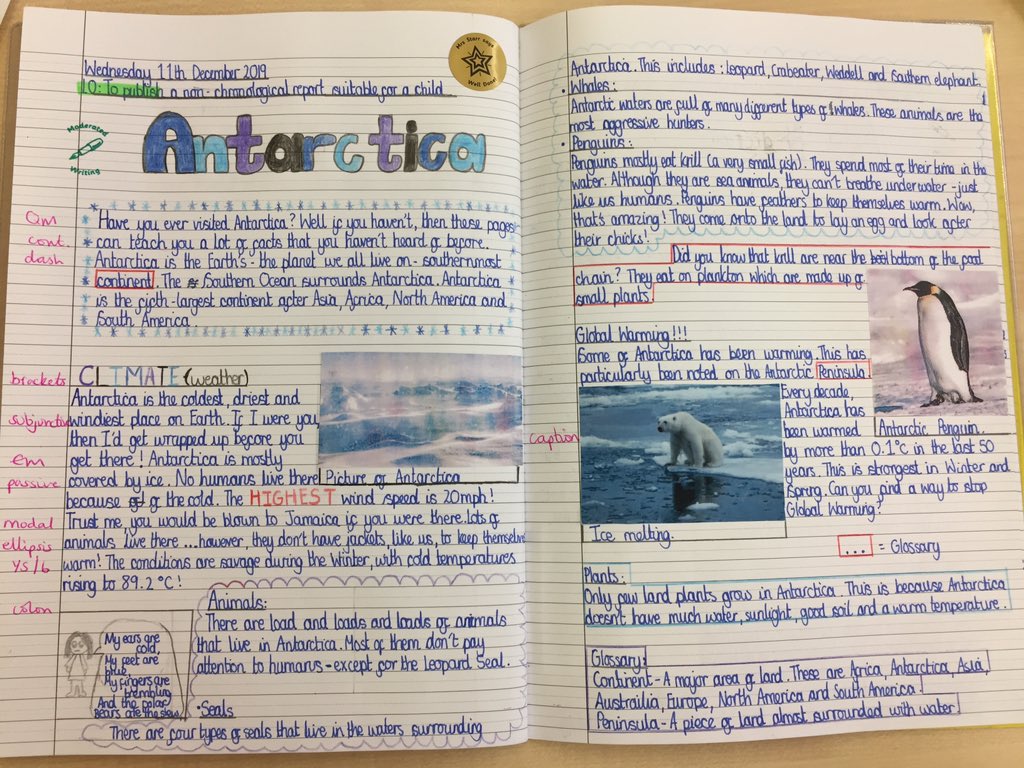 Wednesday 11th December 2019
LO: To publish a non-chronological report suitable for a child
Mrs Starr says
Well Done!
Moderated
Writing
Antarctica
Qm
cont.
dash
Have you ever visited Antarctica? Well if you haven't, then these pages
can teach you a lot of facts that you haven't heard of before.
Antarctica is the Earth's - the planet we all live on - southernmost
continent. The Southern Ocean surrounds Antarctica. Antarctica
is the fifth-largest continent after Asia, Africa, North America and
South America.
brackets
subjunctive
em
passive
modal
ellipsis
ys/6
colon
CLIMATE (weather)
Antarctica is the coldest, driest and
windiest place on Earth. If I were you,
then I'd get wrapped up before you
get there! Antarctica is mostly
covered by ice. No humans live there
because of the cold. The HIGHEST wind speed is 20mph!
Trust me, you would be blown to Jamaica if you were there. lots of
animals live there ... however, they don't have jackets, like us, to keep themselves
warm! The conditions are savage during the Winter, with cold temperatures
rising to 89.2°C!
Picture of Antarctica
My ears are
cold,
My feet are
blue,
My fingers are
trembling
And the polar
Bears ate the stew
Animals:
There are load and loads and loads of animals
that live in Antarctica. Most of them don't pay
attention to humans - except for the Leopard Seal.
• Seals
There are four types of seals that live in the waters surrounding
Antarctica. This includes: Leopard, Crabeater, Weddell and Southern elephant.
• Whales:
Antarctic waters are full of many different types of whales. These animals are the
most aggressive hunters.
• Penguins:
Penguins mostly eat krill (a very small fish). They spend most of their time in the
water. Although they are sea animals, they can't breathe underwater - just
like us humans. Penguins have feathers to keep themselves warm. Wow,
that's amazing! They come onto the land to lay an egg and look after
their chicks.
Did you know that krill are near the bottom of the food
chain? They eat on plankton which are made up of
small plants.
Global Warming!!!
Some of Antarctica has been warming. This has
particularly been noted on the Antarctic Peninsula
caption
Every decade,
Antarctica has
been warmed
by more than 0.1°C in the last 50
years. This is strongest in Winter and
Spring. Can you find a way to stop
Global Warming?
Antarctic Penguin.
Ice melting.
... = Glossary
Plants:
Only few land plants grow in Antarctica. This is because Antarctica
doesn't have much water, sunlight, good soil and a warm temperature.
Glossary:
Continent - A major area of land. These are Africa, Antarctica, Asia,
Austrailia, Europe, North America and South America.
Peninsula - A piece of land almost surrounded with water